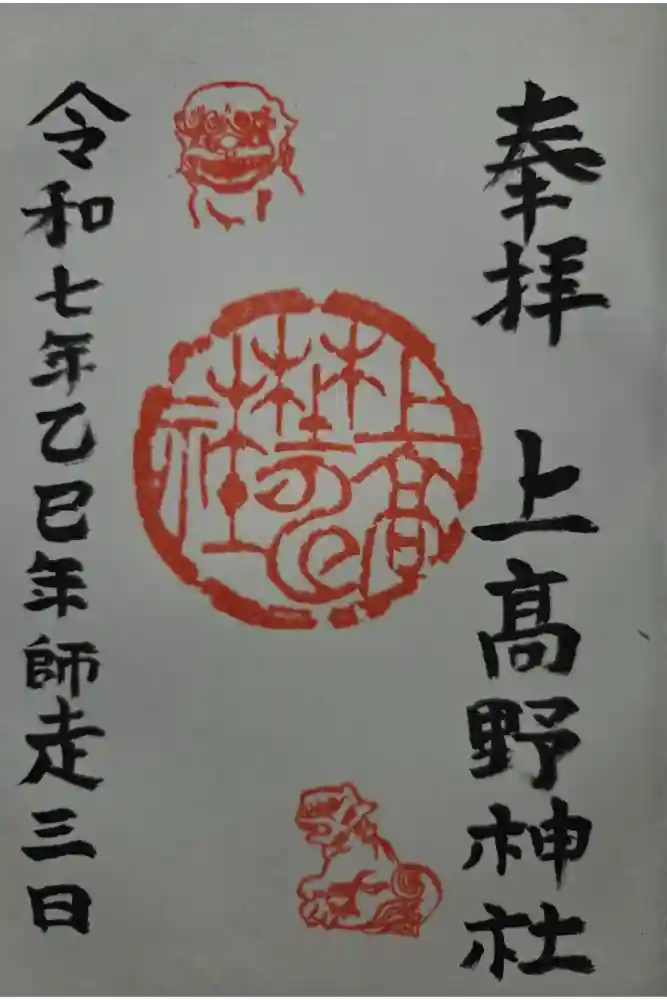 奉拝 上髙野神社
上高野神社
令和七年乙巳年師走三日